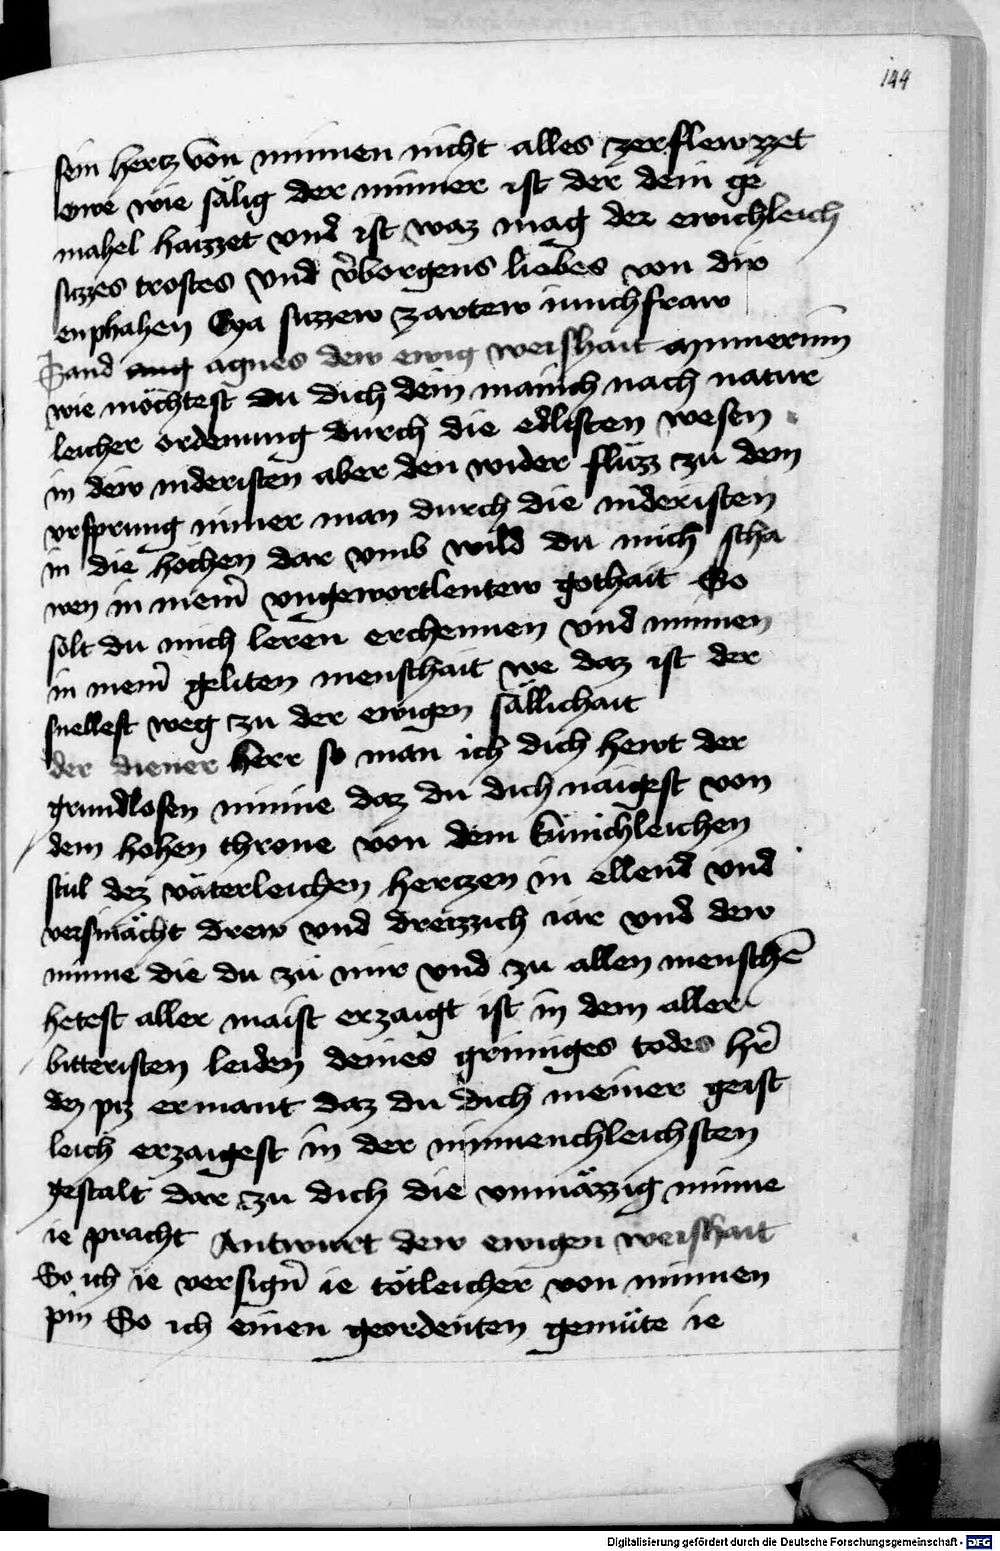 144
sein hertz von minnen nicht alles zerflewzzet
owe wie sälig der minner ist der dein ge
mahel haizzet vnd ist waz mag der ewichleich
süzzes trostes vnd v̄borgens liebes von dir
enphahen Eya süzzew zartew iunchfraw
Sand agnes dew ewig weishait
wie möchtest du dich dem nach natur
leicher ordenung durch die edlisten wesen
in dew nideristen aber den wider fluzz zu dem
vrsprung nimer man durch die nideristen
in die höchen dar vmb wild du mich scha
wen in meinr̄ vngewortlenten gothait So
solt du mich leren erchennen vnd minnen
in meinr̄ geliten menschait we daz ist der
snellest weg zu der ewigen sällichait
der diener herr so man ich dich hewt der
grundlosen minne daz du dich naigest von
dem hohen throne von dem künichleichen
stul dez väterleichen hertzen in ellend vnd
versmächt drew vnd dreizzich iar vnd dew
minne die du zu mir vnd zu allen menschē
hetest aller maist erzaigt ist in dem aller
bitteristen leiden deines grimiges todes hr̄
dez piz ermant daz du dich meiner geist
leich erzaigest in der minnenchleichsten
gestalt dar zu dich die vnmäzzig minne
ie pracht Antwurt dew ewigen weishait
So ich ie versignr̄ ie tötleicher von minnen
pin So ich einen geordenten gemüte ie
Digitalisierung gefördert durch die Deutsche Forschungsgemeinschaft - DFG